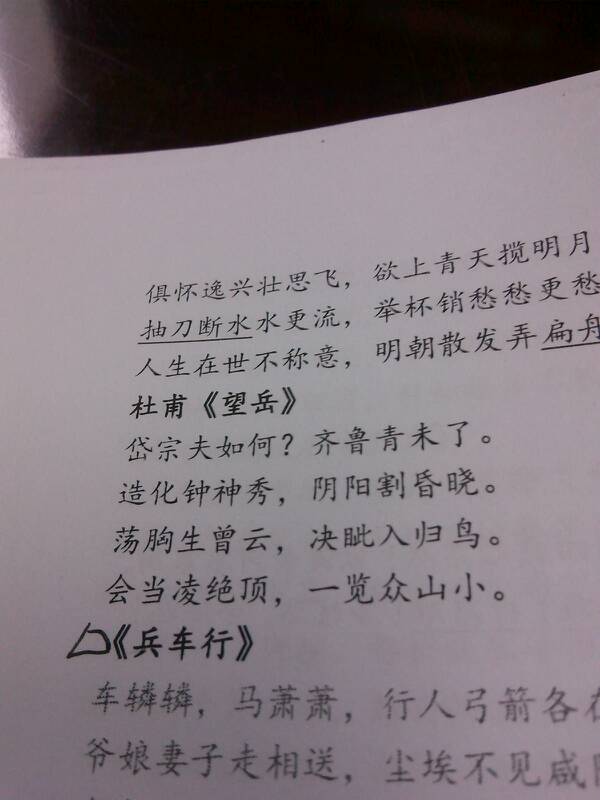 俱怀逸兴壮思飞，欲上青天揽明月
抽刀断水水更流，举杯销愁愁更愁
人生在世不称意，明朝散发弄扁舟
杜甫《望岳》
岱宗夫如何？齐鲁青未了。
造化钟神秀，阴阳割昏晓。
荡胸生曾云，决眦入归鸟。
会当凌绝顶，一览众山小。
《兵车行》
车辚辚，马萧萧，行人弓箭各在
爷娘妻子走相送，尘埃不见咸阳